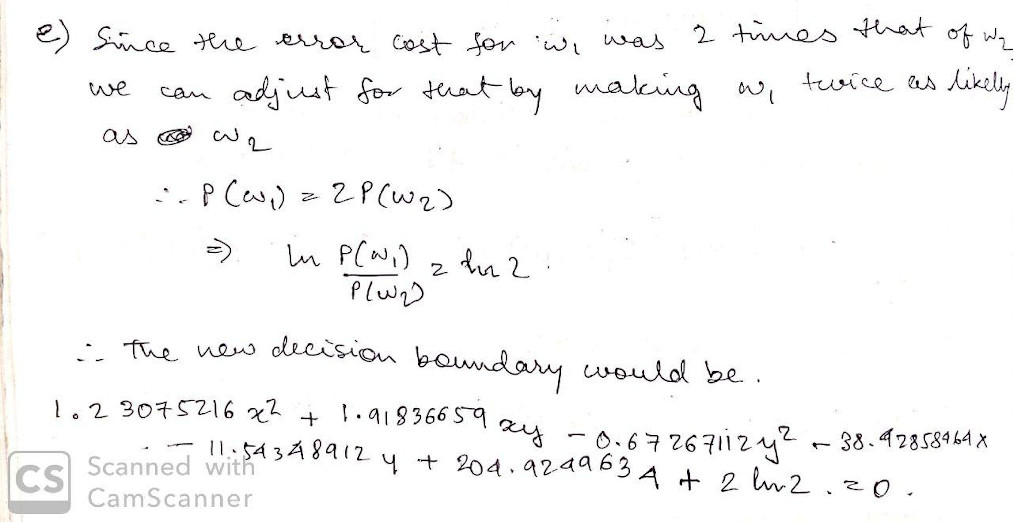 e) Since the error cost for w₁ was 2 times that of w₂
we can adjust for that by making w₁ twice as likely
as w₂
∴ P(w₁) = 2P(w₂)
⇒ ln P(w₁)/P(w₂) = ln 2.
∴ The new decision boundary would be.
1.23075216 x² + 1.91836659 xy - 0.67267112 y² - 38.42858464 x
- 11.54348912 y + 204.9249634 + 2 ln 2. = 0.
CS Scanned with
CamScanner